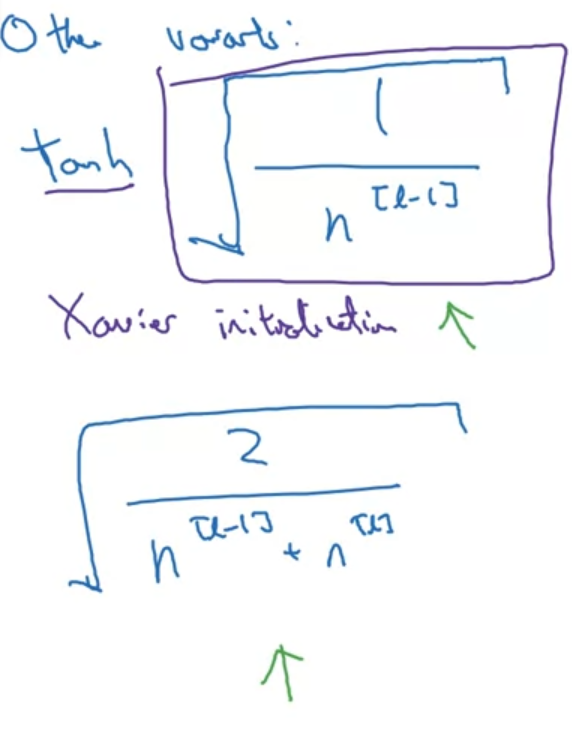 Other variants:
Tanh √(1 / n^[l-1])
Xavier initialization ↑
√(2 / (n^[l-1] + n^[l]))
↑